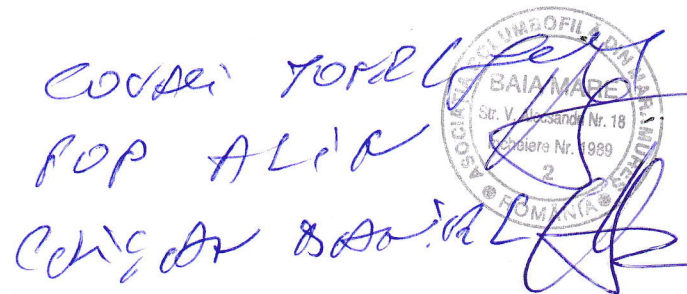 COVACI
POP ALIN
DANIEL
ASOCIATIA COLUMBOFILĂ DIN MARAMUREȘ
BAIA MARE
Str. V. Alecsandri Nr. 18
Încheiere Nr. 1989
2
ROMÂNIA